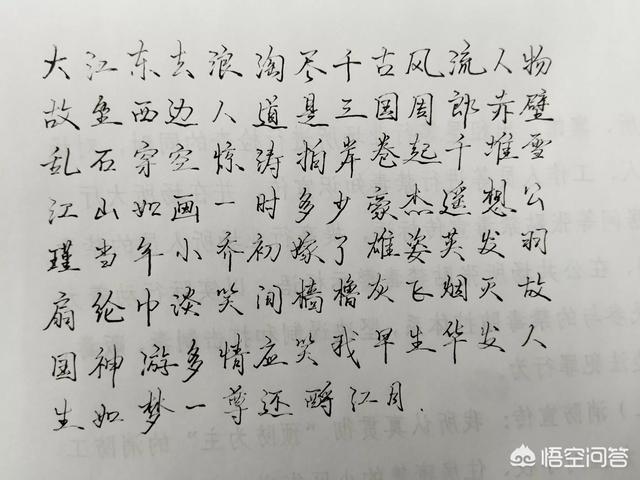 大江东去浪淘尽千古风流人物
故垒西边人道是三国周郎赤壁
乱石穿空惊涛拍岸卷起千堆雪
江山如画一时多少豪杰遥想公
瑾当年小乔初嫁了雄姿英发羽
扇纶巾谈笑间樯橹灰飞烟灭故
国神游多情应笑我早生华发人
生如梦一尊还酹江月.
悟空问答